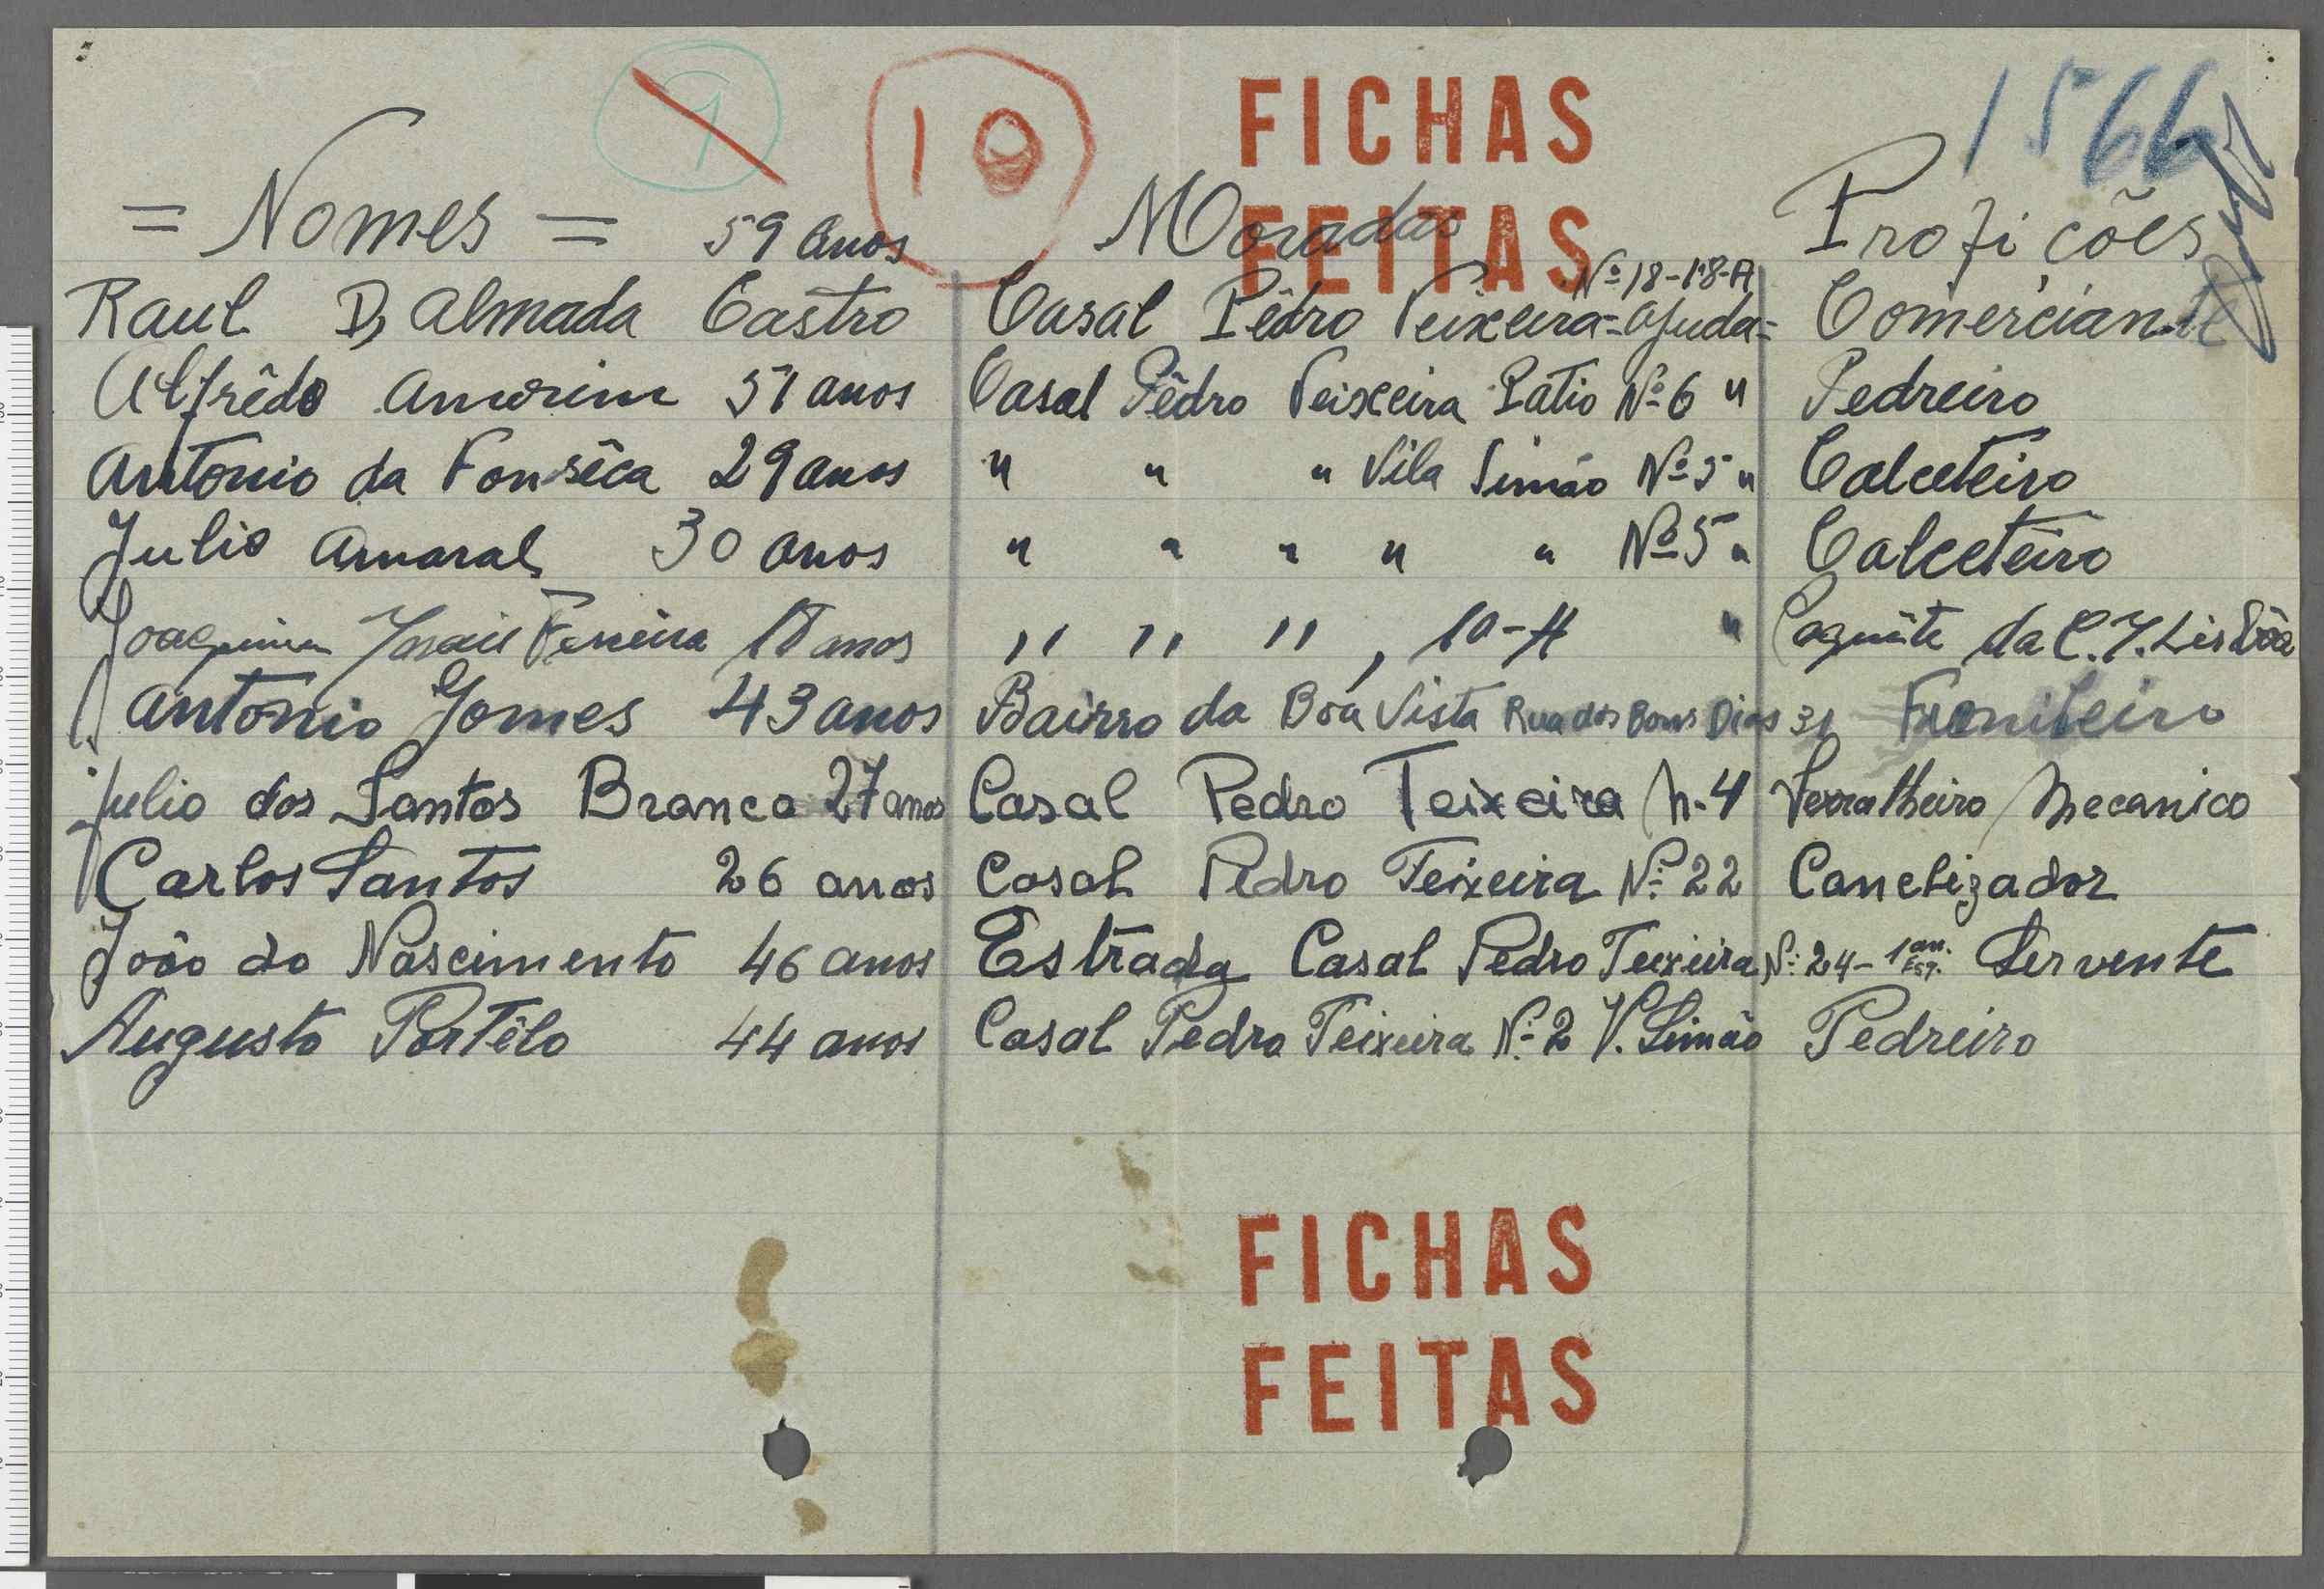 1
10
FICHAS
FEITAS
1566
= Nomes = Moradas Profições
59 anos Nº 18-18-A
Raul D, Almada Castro Casal Pêdro Teixeira=Ajuda= Comerciante
Alfrêdo Amorim 51 anos Casal Pêdro Teixeira Patio Nº 6 " Pedreiro
Antonio da Fonsêca 29 anos " " " Vila Simão Nº 5 " Calceteiro
Julio Amaral 30 anos " " " " " Nº 5 " Calceteiro
Joaquim Ferreira 18 anos " " " , 10-A " da C. Lisbôa
Antonio Gomes 43 anos Bairro da Boa Vista Rua dos Bons Dias 31
Julio dos Santos Branco 27 anos Casal Pedro Teixeira N. 4 Serralheiro Mecanico
Carlos Santos 26 anos Casal Pedro Teixeira Nº 22 Canelizador
João do Nascimento 46 anos Estrada Casal Pedro Teixeira Nº 24- Servente
Augusto Portêlo 44 anos Casal Pedro Teixeira Nº 2 V. Simão Pedreiro
FICHAS
FEITAS